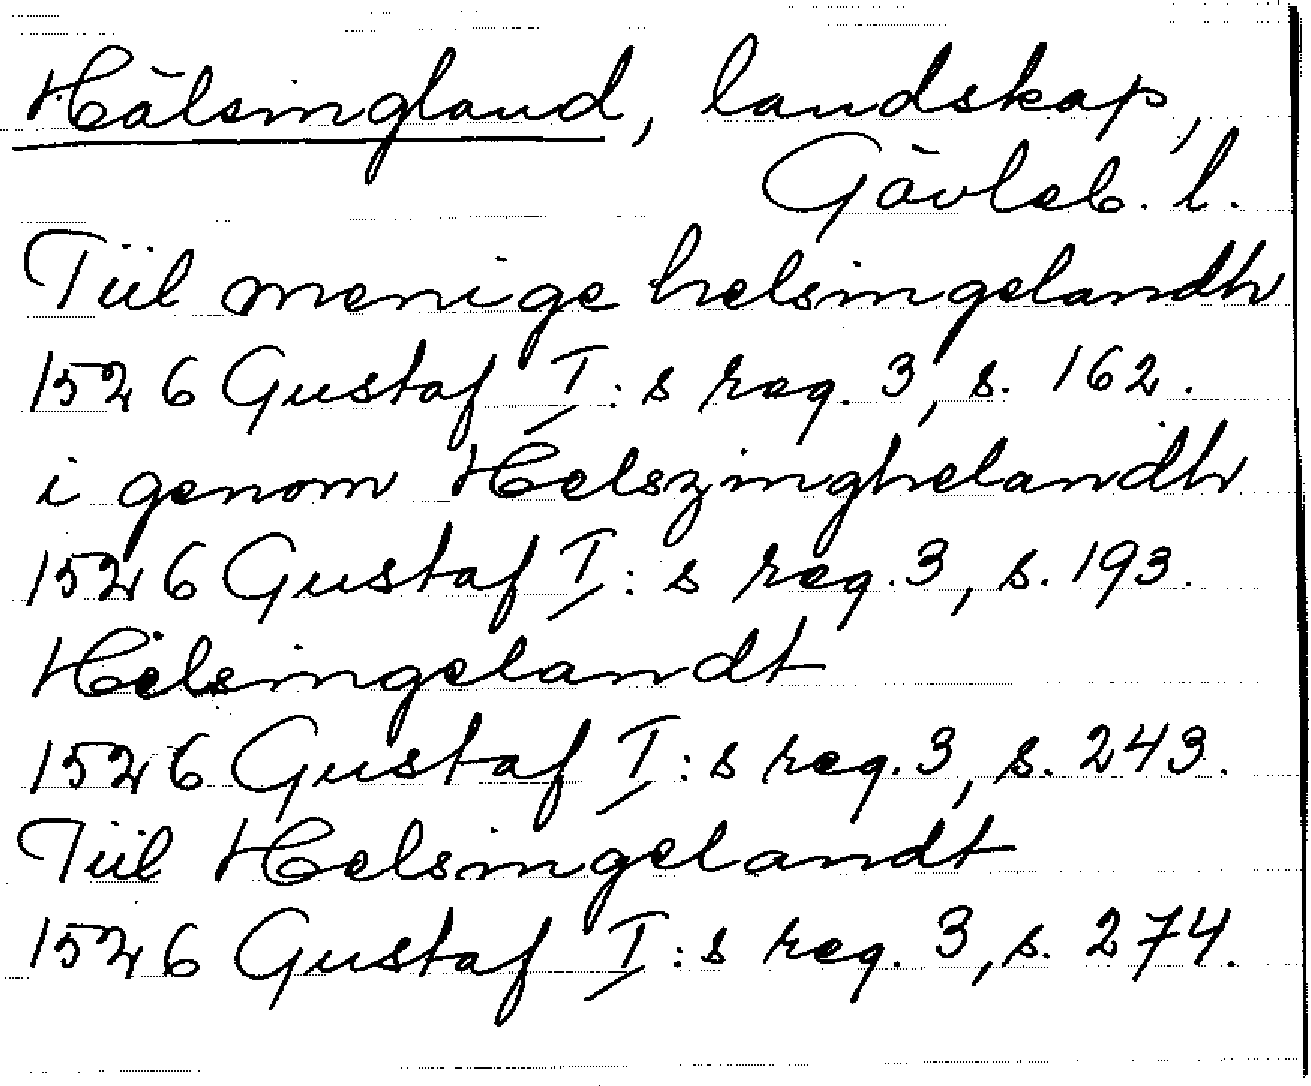 Hälsingland, landskap,
Gävleb. l.
Tiil menige helsingelandh
1526 Gustaf I:s reg. 3, s. 162.
i genom Helszinghelandh
1526 Gustaf I:s reg. 3, s. 193.
Helsingelandt
1526 Gustaf I:s reg. 3, s. 243.
Tiil Helsingelandt
1526 Gustaf I:s reg. 3, s. 274.